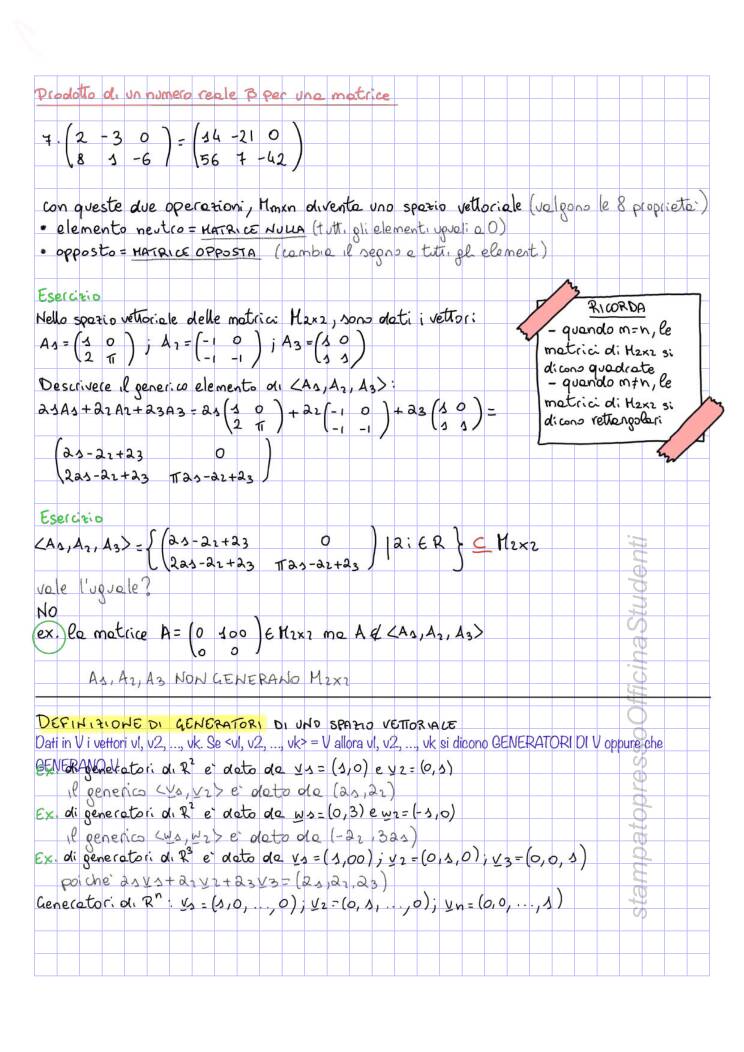 Prodotto di un numero reale β per una matrice
7·(2 -3 0
8 1 -6) = (14 -21 0
56 7 -42)
con queste due operazioni, Mmxn diventa uno spazio vettoriale (valgono le 8 proprietà:)
• elemento neutro = MATRICE NULLA (tutti gli elementi uguali a 0)
• opposto = MATRICE OPPOSTA (cambia il segno a tutti gli element)
Esercizio
Nello spazio vettoriale delle matrici M2x2, sono dati i vettori:
A1=(1 0
2 π) ; A2=(-1 0
-1 -1) ; A3=(1 0
1 1)
Descrivere il generico elemento di <A1, A2, A3>:
a1A1+a2A2+a3A3 = a1(1 0
2 π) + a2(-1 0
-1 -1) + a3(1 0
1 1) =
(a1-a2+a3 0
2a1-a2+a3 πa1-a2+a3)
RICORDA
- quando m=n, le
matrici di M2x2 si
dicono quadrate
- quando m≠n, le
matrici di M2x2 si
dicono rettangolari
Esercizio
<A1, A2, A3> = {(a1-a2+a3 0
2a1-a2+a3 πa1-a2+a3) | ai ∈ R} ⊆ M2x2
vale l'uguale?
NO
ex. la matrice A = (0 100
0 0) ∈ M2x2 ma A ∉ <A1, A2, A3>
A1, A2, A3 NON GENERANO M2x2
DEFINIZIONE DI GENERATORI DI UNO SPAZIO VETTORIALE
Dati in V i vettori v1, v2, ..., vk. Se <v1, v2, ..., vk> = V allora v1, v2, ..., vk si dicono GENERATORI DI V oppure che
GENERANO V
Ex. di generatori di R² è dato da v1 = (1,0) e v2 = (0,1)
il generico <v1, v2> è dato da (a1, a2)
Ex. di generatori di R² è dato da w1 = (0,3) e w2 = (-1,0)
il generico <w1, w2> è dato da (-a2, 3a1)
Ex. di generatori di R³ è dato da v1 = (1,00); v2 = (0,1,0); v3 = (0,0,1)
poiché a1v1+a2v2+a3v3 = (a1, a2, a3)
Generatori di Rⁿ: v1 = (1,0, ...,0); v2 = (0,1, ...,0); vn = (0,0, ...,1)
stampatopressoOfficinaStudenti